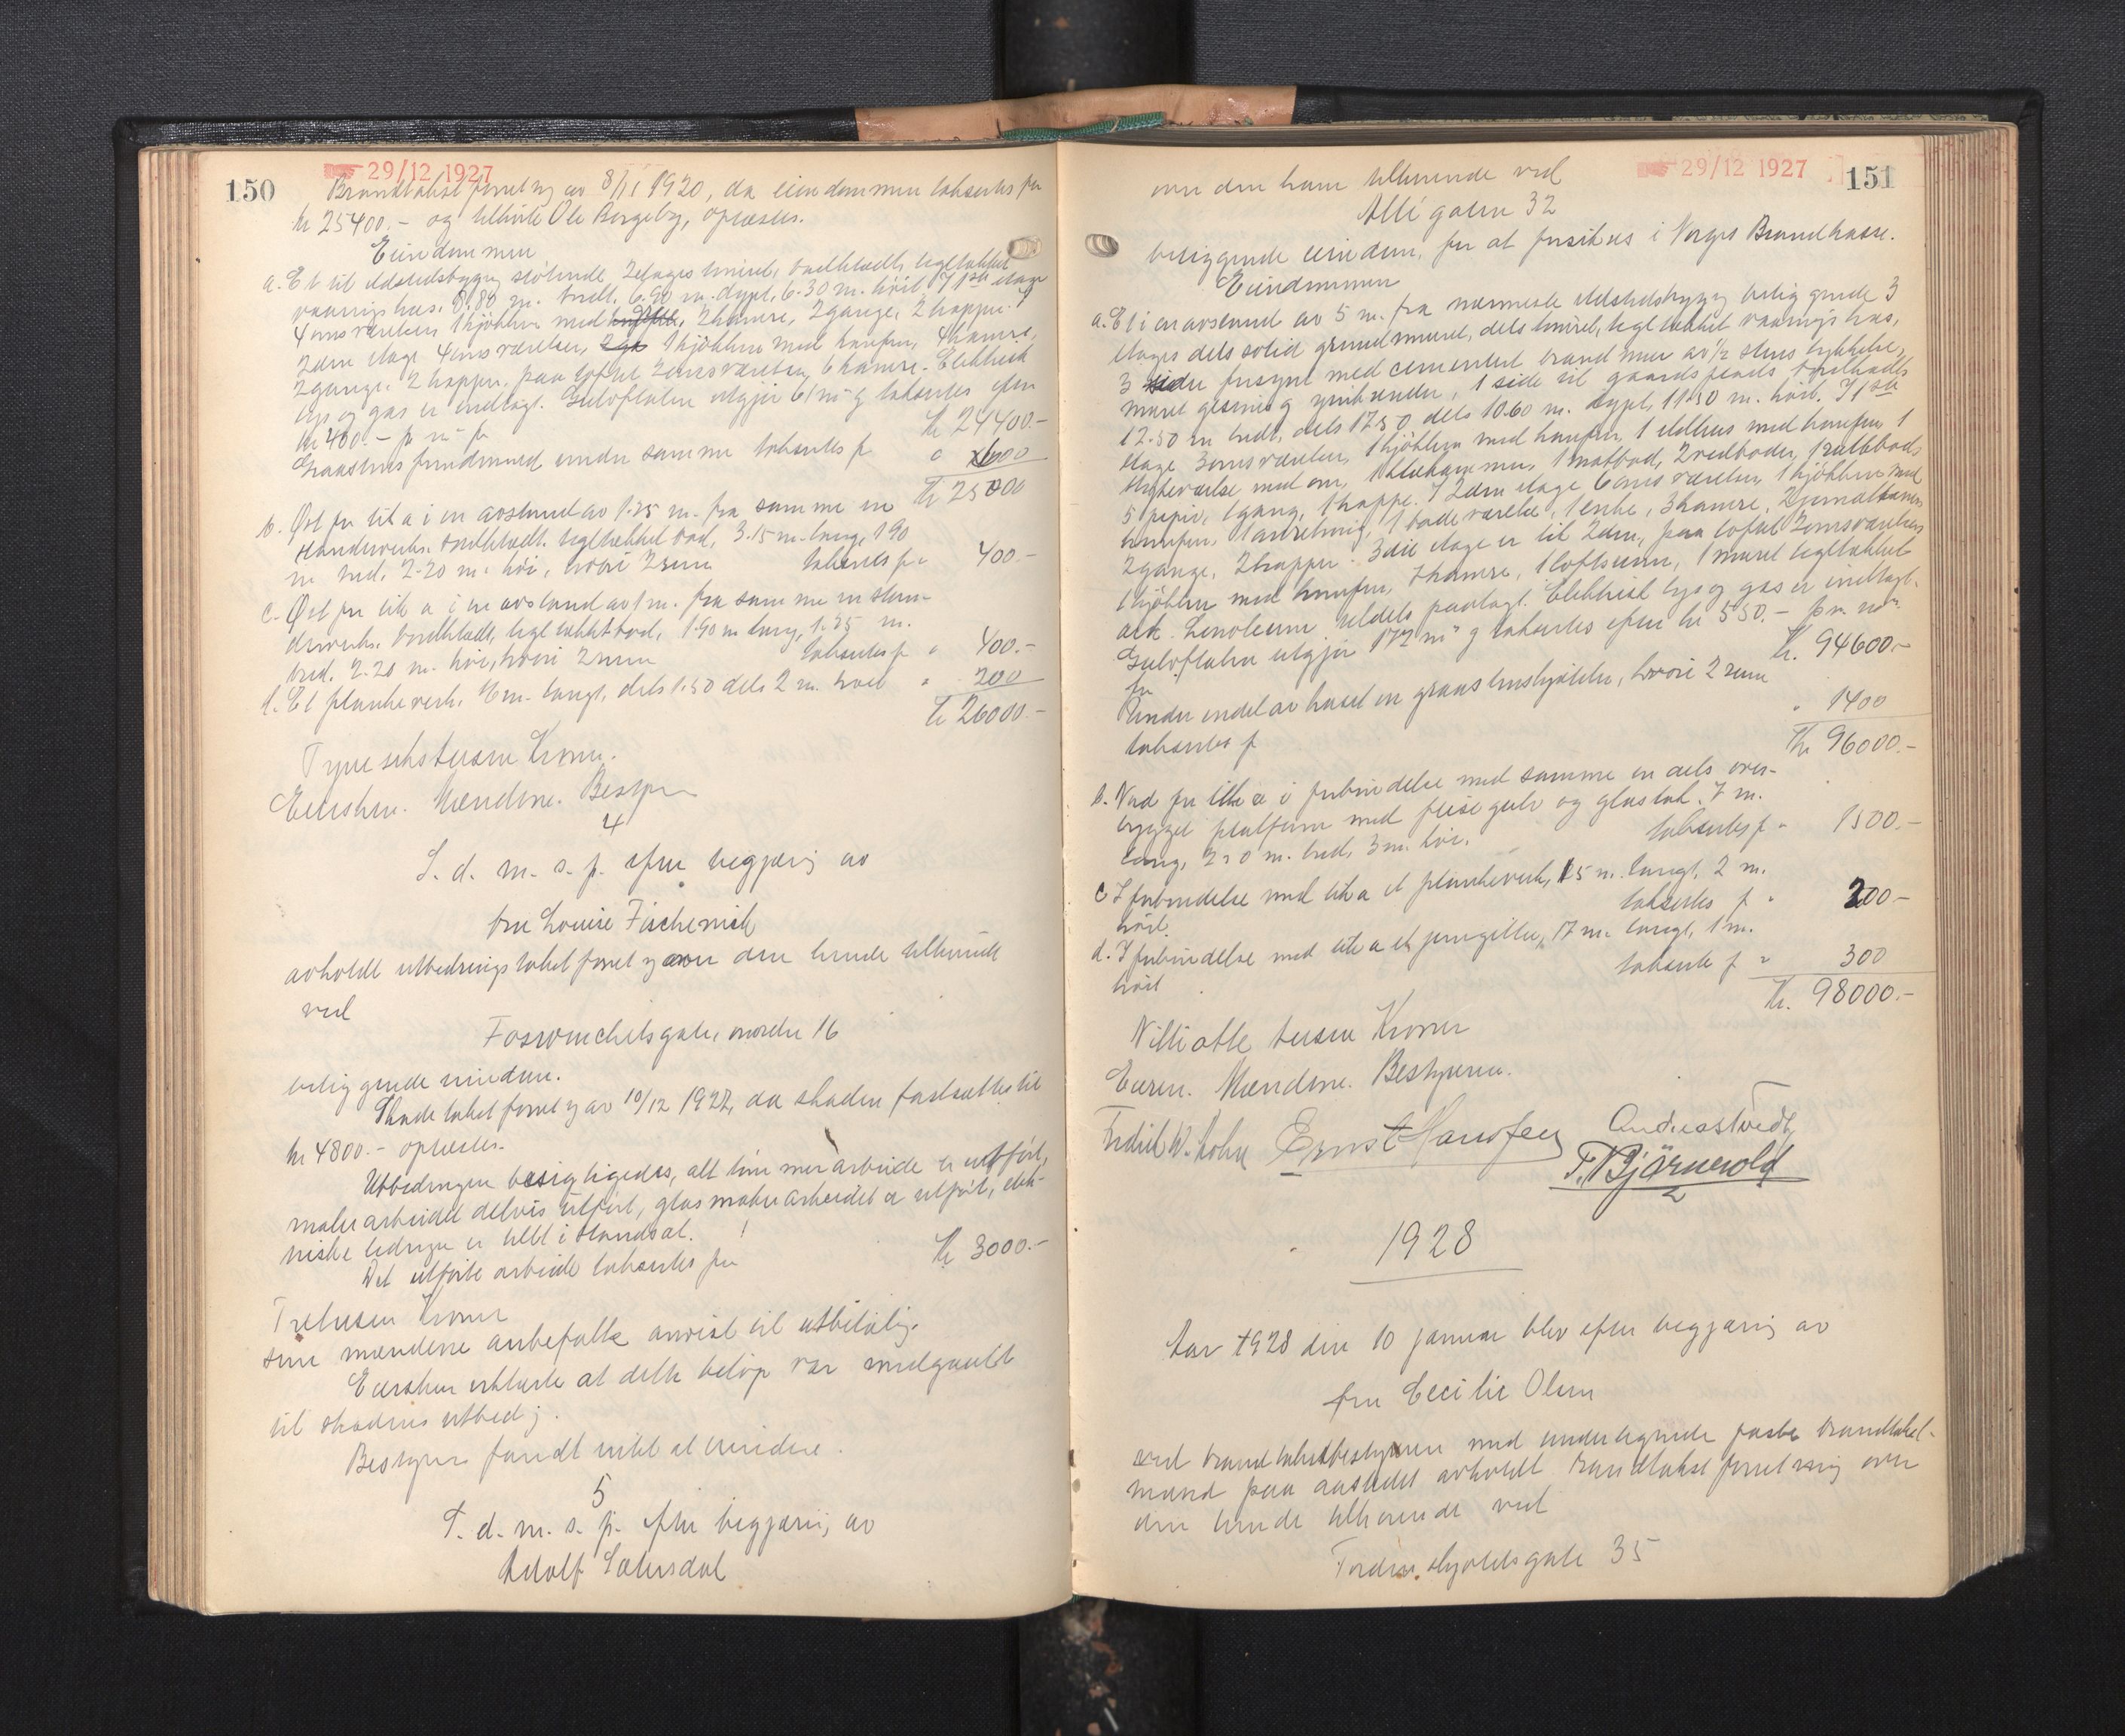 29/12 1927
150
Brandtakst forretng av 8/11 1920, da eiendommen takseres for
kr 25400.- og tilhørte Ole Bergeby, oplæstes.
Eiendommen
a. Et til ildstedsbygng støtende 2etages tømret, bordklædt, tegltækket
vaaningshus. 8.80 m. bredt, 6.90 m. dypt, 6.30 m. høit. I 1ste etage
4 onsværelser 1 kjøkken med, 2 kamre, 2 gange, 2 trapper. I
2den etage 4 onsværelser, 1 kjøkken med komfyr, 4 kamre,
2 gange, 2 trapper, paa loftet 2 onsværelser, 6 kamre. Elektrisk
lys og gas er indlagt. Gulvflaten utgjør 61 m² og takseres efter
kr 400.- pr m² for
kr 24400.-
Graastens fundament under samme takseres for " 600
kr 25000
b. Øst for lit a i en avstand av 1.25 m. fra samme en
standerverks. bordklædt. tegltækket bod, 3.15 m. lang, 1.90
m bred. 2.20 m. høi, hvori 2 rum takseres for " 400.-
c. Øst for lit a i en avstand av 1 m. fra samme en stan-
derverks. bordklædt, tegltækket bod, 1.90 m lang, 1.35 m.
bred. 2.20 m. høi, hvori 2 rum takseres for " 400.-
d. Et plankeverk. 16 m. langt, dels 1.50 dels 2 m. høit " 200
kr 26000.-
Tyve seks tusen Kroner.
Eiersken. Mændene. Bestyr
4
S. d. m. s. p. efter begjæring av
fru Louise Fischenich
avholdt utbedrings takst forretng over den hende tilhørende
ved
Fosswinckelsgate, nordre 16
beliggende eiendom.
Skade takst forretng av 10/12 1927, da skaden fastsattes til
kr 4800.- oplæstes.
Utbedringen besigtigedes, alt tømmerarbeide er utført,
malerarbeidet delvis utført, glasmaler arbeidet er utført, elek-
triske ledninger er sat i stand.
Det utførte arbeide takseres for kr 3000.-
Tretusen Kroner
som mændene anbefalte anvist til utbetaling.
Eiersken erklærte at dette beløp var medgaaet
til skadens utbedr.
Bestyrer fandt intet at erindre.
5
S. d. m. s. p. efter begjæring av
Adolf Sætersdal
29/12 1927
151
over den ham tilhørende ved
Allégaten 32
beliggende eiendom, for at forsikres i Norges Brandkasse.
Eiendommen
a. Et i en avstand av 5 m. fra nærmeste ildstedsbygng beliggende 3
etages dels solid grundmuret, dels tømret, tegltækket vaanings hus,
3 sider forsynt med cementert brandmur av ½ stens tykkelse,
muret gesims og, 1 side til gaardsplads bordklædt
12.50 m bredt, dels 17.50 dels 10.60 m. dypt, 11.50 m. høit. I 1ste
etage 3 onsværelser, 1 kjøkken med komfyr, 1 ildhus med komfyr, 1
strykeværelse med ovn, 1 klækammer, 1 matbod, 2 vedboder, 1 rullebod
5, 1 gang, 1 trappe. I 2den etage 6 onsværelser, 1 kjøkken med
komfyr, 1 anretning, 1 badeværelse, 1 entre, 3 kamre,
2 gange, 2 trapper. 3die etage er lik 2den, paa loftet 2 onsværelser
1 kjøkken med komfyr, 7 kamre, 1 loftsrum, 1 muret tegltækket
ark. Linoleum tildels paalagt. Elektrisk lys og gas er indlagt.
Gulvflaten utgjør 172 m² og takseres efter kr 550.- pr. m²
for kr. 94600.-
Under endel av huset en graastenskjelder, hvori 2 rum
takseres for " 1400
kr 96000.-
b. Nord for litra a i forbindelse med samme en dels over-
bygget platform med flise gulv og glastak. 7 m.
lang, 2.50 m. bred, 3 m. høi. takseres for " 1500.-
c. I forbindelse med lit a et plankeverk, 15 m. langt, 2 m.
høit. takseres for " 200-
d. I forbindelse med lit a et jerngitter, 17 m. langt, 1 m.
høit takseres for " 300
kr. 98000.-
Nitti otte tusen Kroner
Eieren. Mændene. Bestyreren.
Ernst Hansen
T. Bjørnevold
1928
Aar 1928 den 10 januar blev efter begjæring av
fru Cecilie Olsen
ved brandtakstbestyreren med undertegnede faste brandtakst-
mænd paa aastedet avholdt brandtakst forretning over
den hende tilhørende ved
Tordenskjoldsgate 35